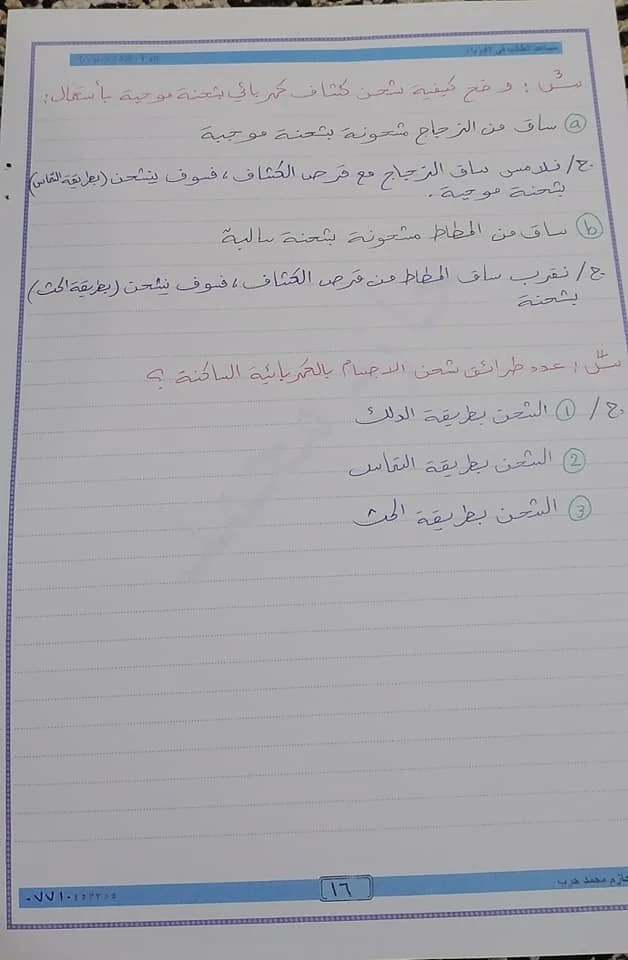 مساعد الطالب في الفيزياء
س: وضح كيفية شحن كشاف كهربائي بشحنة موجبة بأستعمال:
a ساق من الزجاج مشحونة بشحنة موجبة
ج/ نلامس ساق الزجاج مع قرص الكشاف، فسوف ينشحن (بطريقة التماس)
بشحنة موجبة.
b ساق من المطاط مشحونة بشحنة سالبة
ج/ نقرب ساق المطاط من قرص الكشاف، فسوف ينشحن (بطريقة الحث)
بشحنة
س: عدد طرائق شحن الاجسام بالكهربائية الساكنة؟
ج/ 1 الشحن بطريقة الدلك
2 الشحن بطريقة التماس
3 الشحن بطريقة الحث
حازم محمد حرب
١٦